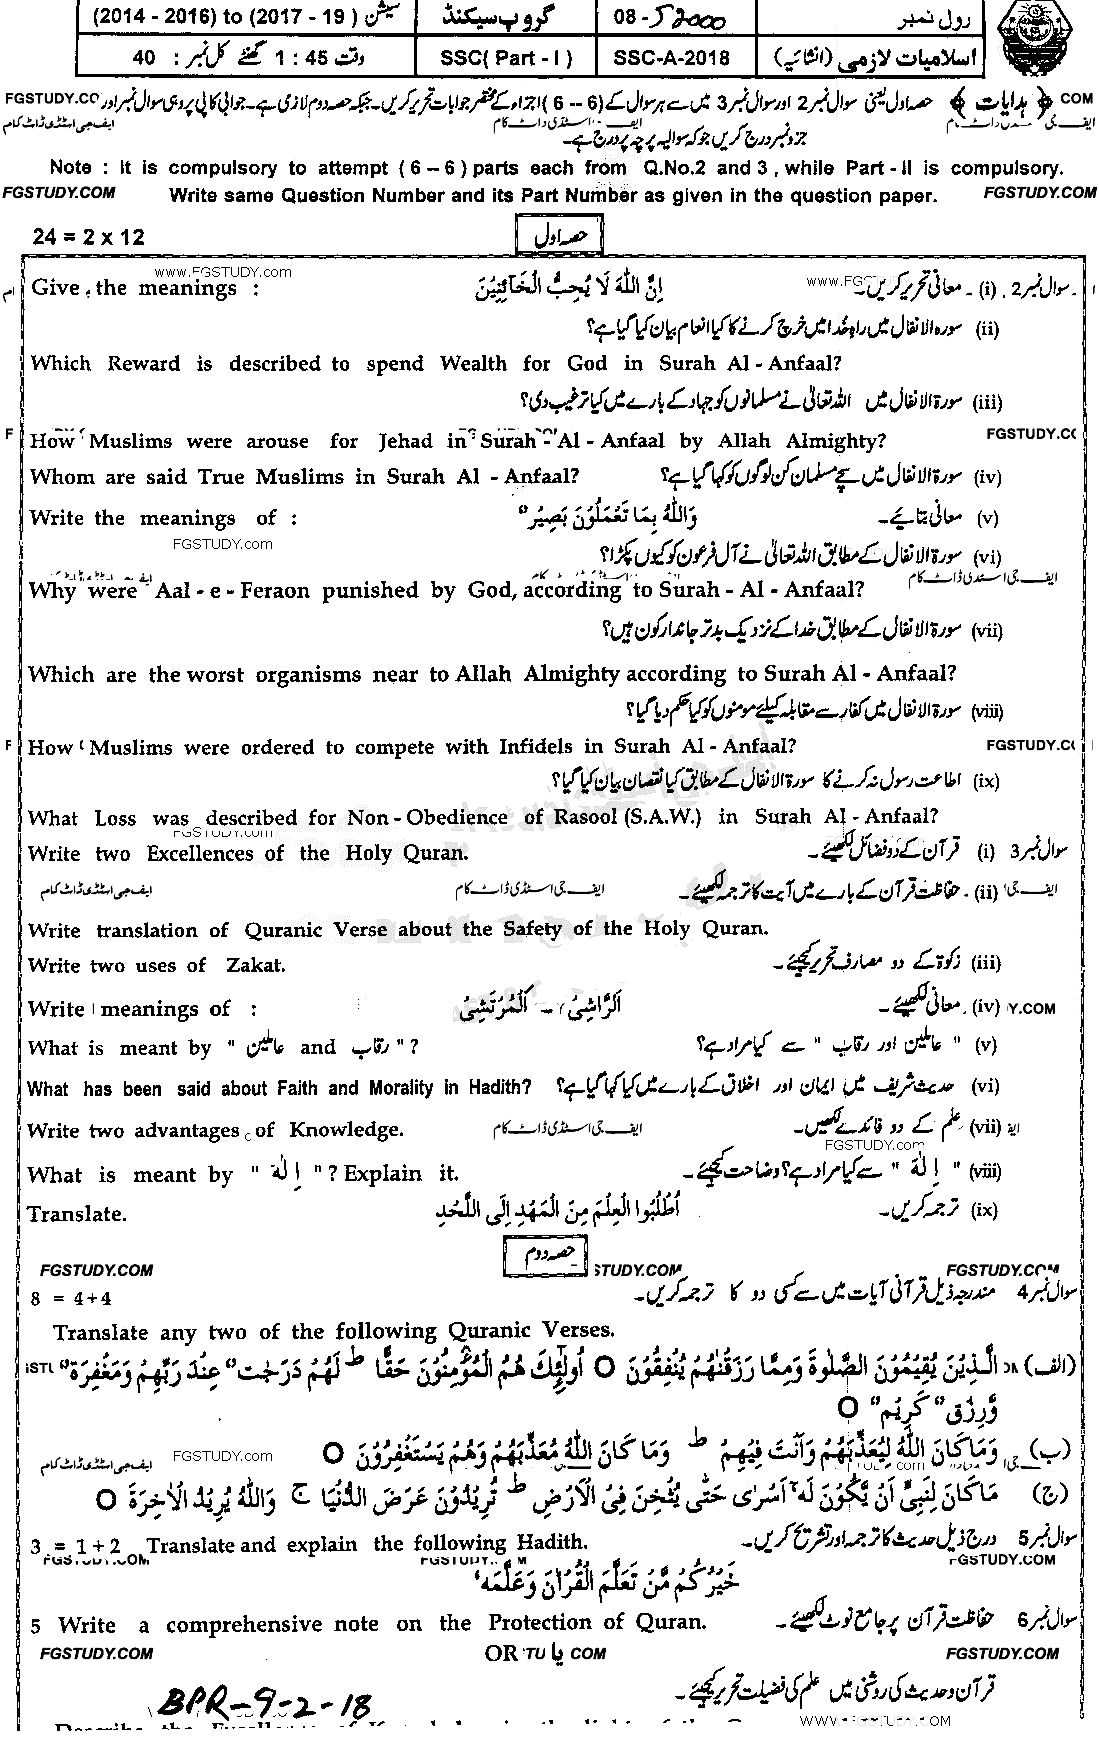 رول نمبر 08 - 52000 گروپ سیکنڈ سیشن (2014 - 2016) to (2017 - 19)
اسلامیات لازمی (انشائیہ) SSC-A-2018 SSC( Part - I ) وقت 1 : 45 گھنٹے کل نمبر : 40
COM ﴿ ہدایات ﴾ حصہ اول یعنی سوال نمبر 2 اور سوال نمبر 3 میں سے ہر سوال کے (6 – 6) اجزاء کے مختصر جوابات تحریر کریں۔ جبکہ حصہ دوم لازمی ہے۔ جوابی کاپی پر وہی سوال نمبر اور FGSTUDY.CO
جزو نمبر درج کریں جو کہ سوالیہ پرچہ پر درج ہے۔
Note : It is compulsory to attempt ( 6 – 6 ) parts each from Q.No.2 and 3 , while Part - II is compulsory.
FGSTUDY.COM Write same Question Number and its Part Number as given in the question paper. FGSTUDY.COM
24 = 2 x 12 حصہ اول
www.FGSTUDY.com www.FG
Give the meanings : اِنَّ اللّٰهَ لَا يُحِبُّ الْخَآئِنِيْنَ سوال نمبر 2 ۔ (i) ۔ معانی تحریر کریں۔
(ii) سورہ الانفال میں راہ خدا میں خرچ کرنے کا کیا انعام بیان کیا گیا ہے؟
Which Reward is described to spend Wealth for God in Surah Al - Anfaal?
(iii) سورۃ الانفال میں اللہ تعالیٰ نے مسلمانوں کو جہاد کے بارے میں کیا ترغیب دی؟
How Muslims were arouse for Jehad in Surah - Al - Anfaal by Allah Almighty? FGSTUDY.CO
Whom are said True Muslims in Surah Al - Anfaal? (iv) سورۃ الانفال میں سچے مسلمان کن لوگوں کو کہا گیا ہے؟
Write the meanings of : وَاللّٰهُ بِمَا تَعْمَلُوْنَ بَصِيْرٌ (v) معانی بتایئے۔
FGSTUDY.com (vi) سورۃ الانفال کے مطابق اللہ تعالیٰ نے آل فرعون کو کیوں پکڑا؟
Why were Aal - e - Feraon punished by God, according to Surah - Al - Anfaal? ایف جی اسٹڈی ڈاٹ کام
(vii) سورۃ الانفال کے مطابق خدا کے نزدیک بدتر جاندار کون ہیں؟
Which are the worst organisms near to Allah Almighty according to Surah Al - Anfaal?
(viii) سورۃ الانفال میں کفار سے مقابلہ کیلئے مومنوں کو کیا حکم دیا گیا؟
How Muslims were ordered to compete with Infidels in Surah Al - Anfaal? FGSTUDY.C
(ix) اطاعت رسول نہ کرنے کا سورۃ الانفال کے مطابق کیا نقصان بیان کیا گیا؟
What Loss was described for Non - Obedience of Rasool (S.A.W.) in Surah Al - Anfaal?
FGSTUDY.com
Write two Excellences of the Holy Quran. سوال نمبر 3 (i) قرآن کے دو فضائل لکھیئے۔
ایف جی اسٹڈی ڈاٹ کام ایف جی اسٹڈی ڈاٹ کام (ii) ۔ حفاظت قرآن کے بارے میں آیت کا ترجمہ لکھیئے۔
Write translation of Quranic Verse about the Safety of the Holy Quran.
Write two uses of Zakat. (iii) زکوٰۃ کے دو مصارف تحریر کیجئے۔
Write meanings of : اَلرَّاشِیْ ۔ اَلْمُرْتَشِیْ (iv) معانی لکھیئے۔ Y.COM
What is meant by " عاملین and رقاب "? (v) " عاملین اور رقاب " سے کیا مراد ہے؟
What has been said about Faith and Morality in Hadith? (vi) حدیث شریف میں ایمان اور اخلاق کے بارے میں کیا کہا گیا ہے؟
Write two advantages of Knowledge. ایف جی اسٹڈی ڈاٹ کام (vii) علم کے دو فائدے لکھیں۔
FGSTUDY.com
What is meant by " اِلٰهَ "? Explain it. (viii) " اِلٰهَ " سے کیا مراد ہے؟ وضاحت کیجئے۔
Translate. اُطْلُبُوا الْعِلْمَ مِنَ الْمَهْدِ اِلَى اللَّحْدِ (ix) ترجمہ کریں۔
حصہ دوم
FGSTUDY.COM STUDY.COM FGSTUDY.COM
8 = 4+4 سوال نمبر 4 مندرجہ ذیل قرآنی آیات میں سے کسی دو کا ترجمہ کریں۔
Translate any two of the following Quranic Verses.
(الف) الَّذِيْنَ يُقِيْمُوْنَ الصَّلٰوةَ وَمِمَّا رَزَقْنٰهُمْ يُنْفِقُوْنَ O اُولٰٓئِكَ هُمُ الْمُؤْمِنُوْنَ حَقًّا ط لَهُمْ دَرَجٰتٌ عِنْدَ رَبِّهِمْ وَمَغْفِرَةٌ
وَّرِزْقٌ كَرِيْمٌ O
(ب) وَمَا كَانَ اللّٰهُ لِيُعَذِّبَهُمْ وَاَنْتَ فِيْهِمْ ط وَمَا كَانَ اللّٰهُ مُعَذِّبَهُمْ وَهُمْ يَسْتَغْفِرُوْنَ O FGSTUDY.com ایف جی اسٹڈی ڈاٹ کام
(ج) مَا كَانَ لِنَبِيٍّ اَنْ يَّكُوْنَ لَهٗ اَسْرٰى حَتّٰى يُثْخِنَ فِى الْاَرْضِ ط تُرِيْدُوْنَ عَرَضَ الدُّنْيَا ج وَاللّٰهُ يُرِيْدُ الْاٰخِرَةَ O
3 = 1+2 Translate and explain the following Hadith. سوال نمبر 5 درج ذیل حدیث کا ترجمہ اور تشریح کریں۔
FGSTUDY.COM FGSTUDY. M FGSTUDY.COM
خَيْرُكُمْ مَّنْ تَعَلَّمَ الْقُرْاٰنَ وَعَلَّمَهٗ
5 Write a comprehensive note on the Protection of Quran. سوال نمبر 6 حفاظت قرآن پر جامع نوٹ لکھیئے۔
FGSTUDY.COM OR یا TU COM FGSTUDY.COM
قرآن و حدیث کی روشنی میں علم کی فضیلت تحریر کیجئے۔
BPR-9-2-18
WWW.FGSTUDY.COM